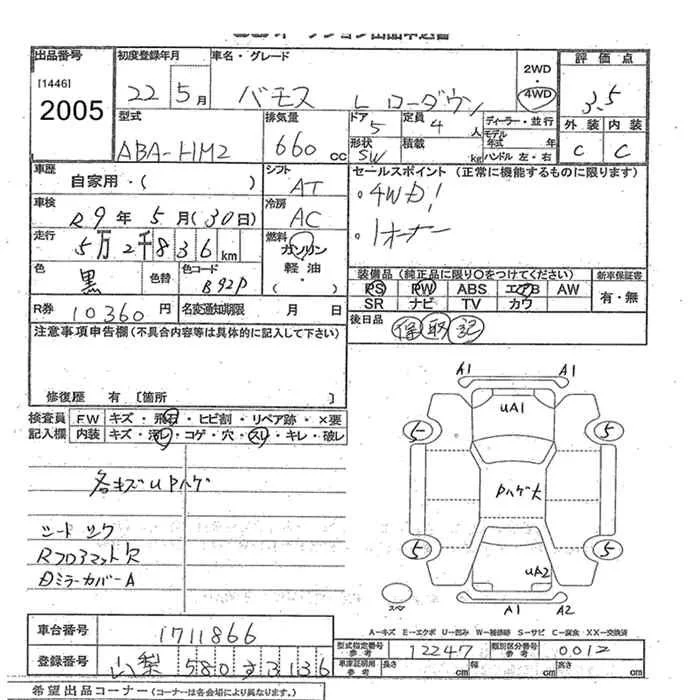 オークション出品申込書
出品番号 [1446] 2005
初度登録年月 22 5月
車名・グレード バモス L ローダウン
2WD・4WD
評価点 3.5
外装 C 内装 C
型式 ABA-HM2
排気量 660 cc
ドア 5 定員 4人
形状 SW 積載 kg
ディーラー・並行
モデル年式 年
ハンドル 左・右
車歴 自家用・( )
シフト AT
セールスポイント (正常に機能するものに限ります)
・4WD!
・1オーナー
車検 R9年 5月(30日)
冷房 AC
走行 5万2千836km
燃料 ガソリン 軽油・( ・ )
色 黒 色替 色コード B92P
装備品 (純正品に限り○をつけてください)
PS PW ABS エアB AW
SR ナビ TV カワ
新車保証書 有・無
R券 10360円 名変通知期限 月 日
後日品 保 取 記
注意事項申告欄 (不具合内容等は具体的に記入して下さい)
修復歴 有 〔箇所 〕
検査員記入欄
FW キズ・飛石・ヒビ割・リペア跡・×要
内装 キズ・汚レ・コゲ・穴・スレ・キレ・破レ
各キズUPハゲ
シート シワ
Rフロアマット欠
Dミラーカバー A
A1 A1
UA1
5 5
Pハゲ大
5 5
UA2
スペア
A1 A2
A-キズ E-エクボ U-凹み W-補修跡 S-サビ C-腐食 XX-交換済
車台番号 1711866
登録番号 山梨 580 す 3136
型式指定番号 参考 12247 類別区分番号 参考 0012
車庫証明用 参考 長さ cm 幅 cm 高さ cm
希望出品コーナー (コーナーは各会場により異なります。)